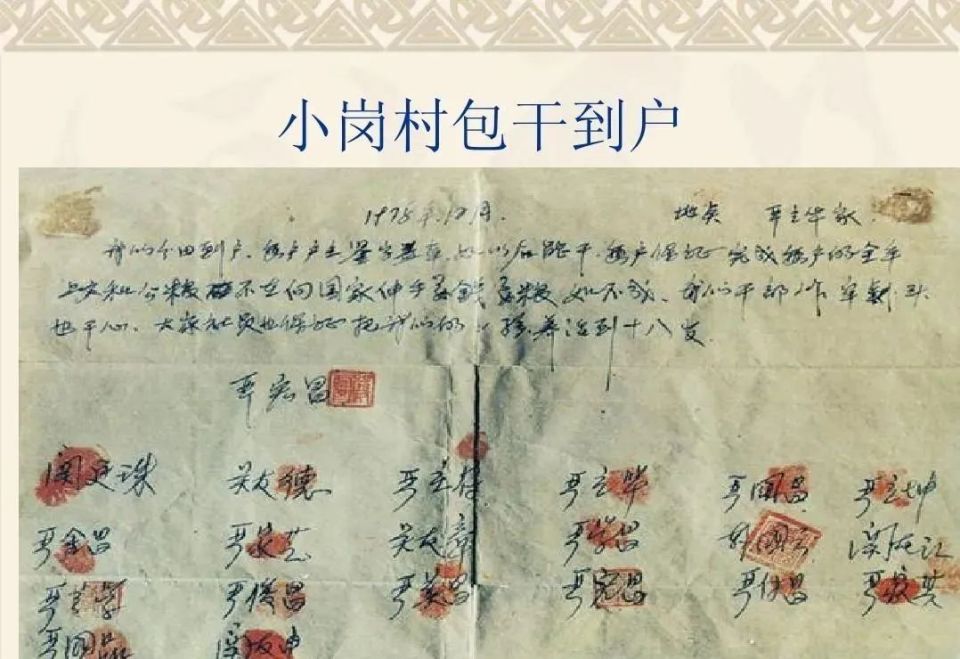 小岗村包干到户
1978年12月. 地点 严立华家
我们分田到户. 每户户主签字盖章. 如以后能干. 每户保证完成每户的全年
上交和公粮. 不在向国家伸手要钱要粮. 如不成. 我们干部作牢刹头
也干心. 大家社员也保证把我们的小孩养活到十八岁.
严宏昌
关友德 严立符 严立华 严国昌 严立坤
严金昌 严家芝 关友章 严学昌 韩国云 关友江
严立学 严俊昌 严美昌 严宏昌 严付昌 严家其
严国品 关友申